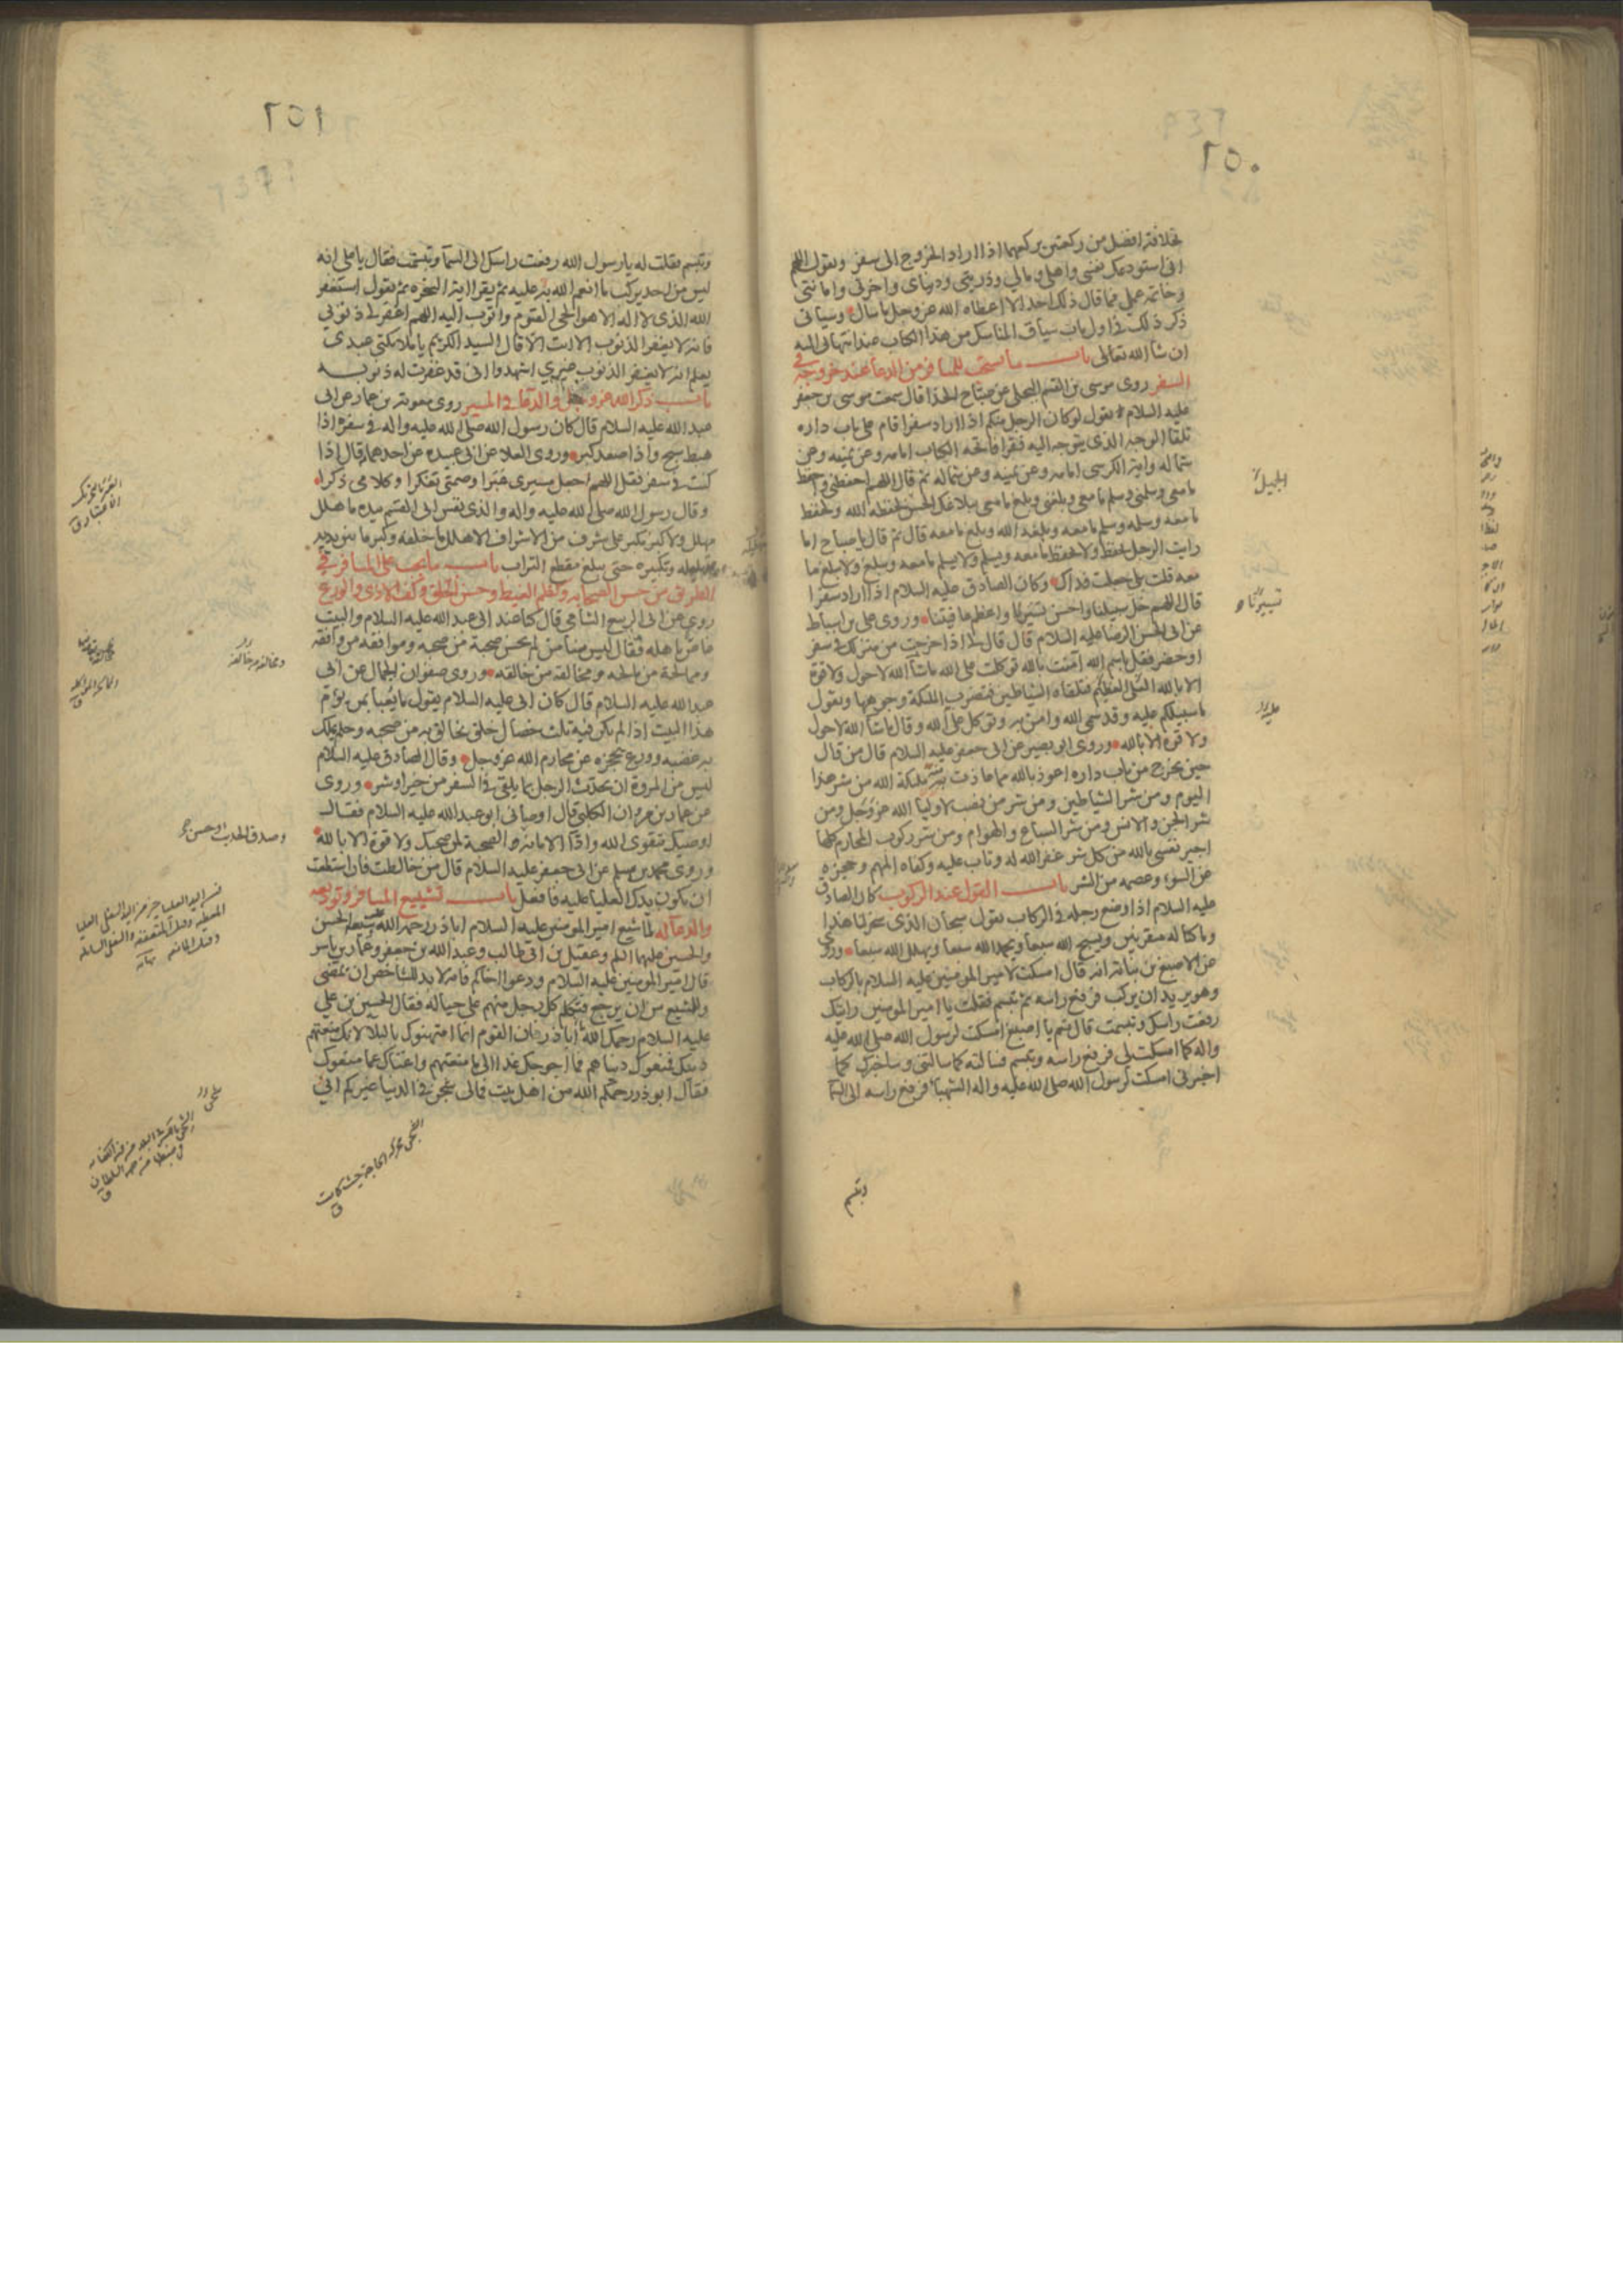 ٢٥٠
بخلافة افضل من ركعتين يركعهما اذا اراد الخروج الى سفر ويقول اللهم
انى استودعك نفسى واهلى ومالي وذريتى ودنياى واخرتى وامانتى
وخاتمة عملى فما قال ذلك احد الا اعطاه الله عز وجل ما سال وسياتى
ذكر ذلك فى اول باب سياق المناسك من هذا الكتاب عند انتهائى اليه
ان شا الله تعالى باب ما يستحب للمسافر من الدعا عند خروجه فى
السفر روى موسى بن القسم البجلى عن صباح الحذا قال سمعت موسى بن جعفر
عليه السلام يقول لو كان الرجل منكم اذا اراد سفرا قام على باب داره
تلقا الوجه الذى يتوجه اليه فقرا فاتحة الكتاب امامه وعن يمينه وعن
شماله واية الكرسى امامه وعن يمينه وعن شماله ثم قال اللهم احفظنى واحفظ
ما معى وسلمنى وسلم ما معى وبلغنى وبلغ ما معى ببلاغك الحسن لحفظه الله ولحفظ
ما معه وسلمه وسلم ما معه وبلغه الله وبلغ ما معه قال ثم قال يا صباح اما
رايت الرجل يحفظ ولا يحفظ ما معه ويسلم ولا يسلم ما معه ويبلغ ولا يبلغ ما
معه قلت بلى جعلت فداك وكان الصادق عليه السلام اذا اراد سفرا
قال اللهم خل سبيلنا واحسن تسييرنا واعظم عافيتنا وروى على بن اسباط
عن ابى الحسن الرضا عليه السلام قال قال لى اذا خرجت من منزلك فى سفر
او حضر فقل بسم الله آمنت بالله توكلت على الله ما شآ الله لا حول ولا قوة
الا بالله العلى العظيم فتلقاه الشياطين فتضرب الملئكة وجوهها وتقول
ما سبيلكم عليه وقد سمى الله وامن به وتوكل على الله وقال ما شآ الله لا حول
ولا قوة الا بالله وروى ابو بصير عن ابى جعفر عليه السلام قال من قال
حين يخرج من باب داره اعوذ بالله مما عاذت منه ملئكة الله من شر هذا
اليوم ومن شر الشياطين ومن شر من نصب لاوليآ الله عز وجل ومن
شر الجن والانس ومن شر السباع والهوام ومن شر ركوب المحارم كلها
اجير نفسى بالله من كل شر غفر الله له وتاب عليه وكفاه المهم وحجزه
عن السوء وعصمه من الشر باب القول عند الركوب كان الصادق
عليه السلام اذا وضع رجله فى الركاب يقول سبحان الذى سخر لنا هذا
وما كنا له مقرنين ويسبح الله سبعا ويحمد الله سبعا ويهلل الله سبعا وروى
عن الاصبغ بن نباتة انه قال امسكت لامير المومنين عليه السلام بالركاب
وهو يريد ان يركب فرفع راسه ثم تبسم فقلت يا امير المومنين رايتك
رفعت راسك وتبسمت قال نعم يا اصبغ امسكت لرسول الله صلى الله عليه
واله كما امسكت لى فرفع راسه وتبسم فسالته كما سالتنى وساخبرك كما
اخبرنى امسكت لرسول الله صلى الله عليه واله الشهبآ فرفع راسه الى السمآ
وتبسم
الجميل
تسييرنا
عليه
٢٥١
وتبسم فقلت له يا رسول الله رفعت راسك الى السمآ وتبسمت فقال يا على انه
ليس من احد يركب ما انعم الله به عليه ثم يقرا اية السخرة ثم يقول استغفر
الله الذى لا اله الا هو الحى القيوم واتوب اليه اللهم اغفر لى ذنوبي
فانه لا يغفر الذنوب الا انت الا قال السيد الكريم يا ملائكتى عبدى
يعلم انه لا يغفر الذنوب غيرى اشهدوا انى قد غفرت له ذنوبه
باب ذكر الله عز وجل والدعا فى المسير روى معوية بن عمار عن ابى
عبد الله عليه السلام قال كان رسول الله صلى الله عليه واله فى سفره اذا
هبط سبح واذا صعد كبر وروى العلا عن ابى عبيدة عن احدهما قال اذا
كنت فى سفر فقل اللهم اجعل مسيرى عبرا وصمتى تفكرا وكلامى ذكرا
وقال رسول الله صلى الله عليه واله والذى نفس ابى القسم بيده ما هلل
مهلل ولا كبر مكبر على شرف من الاشراف الا هلل ما خلفه وكبر ما بين يديه
بتهليله وتكبيره حتى يبلغ مقطع التراب باب ما يجب على المسافر فى
الطريق من حسن الصحابة وكظم الغيظ وحسن الخلق وكف الاذى والورع
روى عن ابى الربيع الشامى قال كنا عند ابى عبد الله عليه السلام والبيت
غاص باهله فقال ليس منا من لم يحسن صحبة من صحبه وموافقة من وافقه
وممالحة من مالحه ومخالقة من خالقه وروى صفوان الجمال عن ابى
عبد الله عليه السلام قال كان ابى عليه السلام يقول ما يعبا بمن يؤم
هذا البيت اذا لم يكن فيه ثلث خصال خلق يخالق به من صحبه وحلم يملك
به غضبه وورع يحجزه عن محارم الله عز وجل وقال الصادق عليه السلام
ليس من المروة ان يحدث الرجل بما يلقى فى السفر من خير او شر وروى
عن عمار بن مروان الكلبى قال اوصانى ابو عبد الله عليه السلام فقال
اوصيك بتقوى الله واداآ الامانة و الصحبة لمن صحبك ولا قوة الا بالله
وروى محمد بن مسلم عن ابى جعفر عليه السلام قال من خالطت فان استطعت
ان يكون يدك العليا عليه فافعل باب تشييع المسافر وتوديعه
والدعآ له لما شيع امير المومنين عليه السلام اباذر رحمة الله عليه شيعه الحسن
والحسين عليهما السلم وعقيل بن ابى طالب وعبد الله بن جعفر وعمار بن ياسر
قال امير المومنين عليه السلام ودعوا اخاكم فانه لا بد للشاخص ان يمضى
وللمشيع من ان يرجع فتكلم كل رجل منهم على حياله فقال الحسين بن علي
عليه السلام رحمك الله يا اباذر ان القوم انما امتهنوك بالبلا لانك منعتهم
دينك فمنعوك دنياهم فما احوجك غدا الى ما منعتهم واغناك عما منعوك
فقال ابو ذر رحمكم الله من اهل بيت فمالى شجن فى الدنيا غيركم انى
ومخالقة من خالقه
وصدق الحديث وحسن
الشجن محركة الحاجة حيث كانت